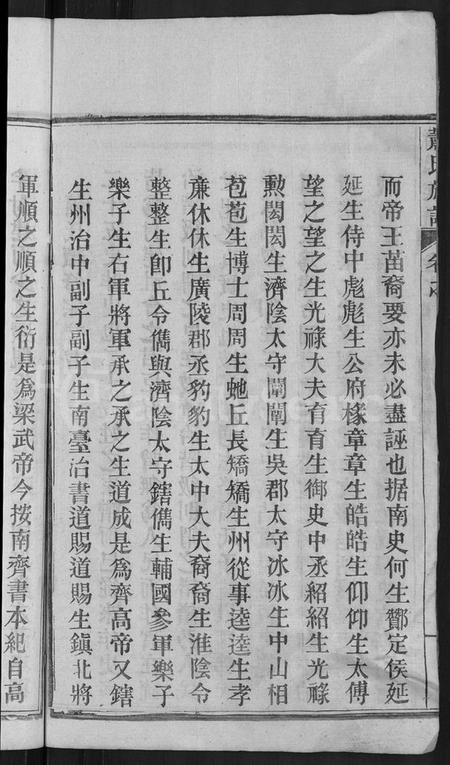 而帝王苗裔要亦未必盡誣也据南史何生酇定侯延
延生侍中彪彪生公府椽章章生皓皓生仰仰生太傅
望之望之生光祿大夫育育生御史中丞紹紹生光祿
勲閎閎生濟陰太守闡闡生吳郡太守冰冰生中山相
苞苞生博士周周生虵丘長矯矯生州從事逵逵生孝
亷休休生廣陵郡丞豹豹生太中大夫裔裔生淮陰令
整整生卽丘令儁與濟陰太守鎋儁生輔國參軍樂子
樂子生右軍將軍承之承之生道成是爲齊高帝又鎋
生州治中副子副子生南臺治書道賜道賜生鎮北將
軍順之順之生衍是爲梁武帝今按南齊書本紀自高